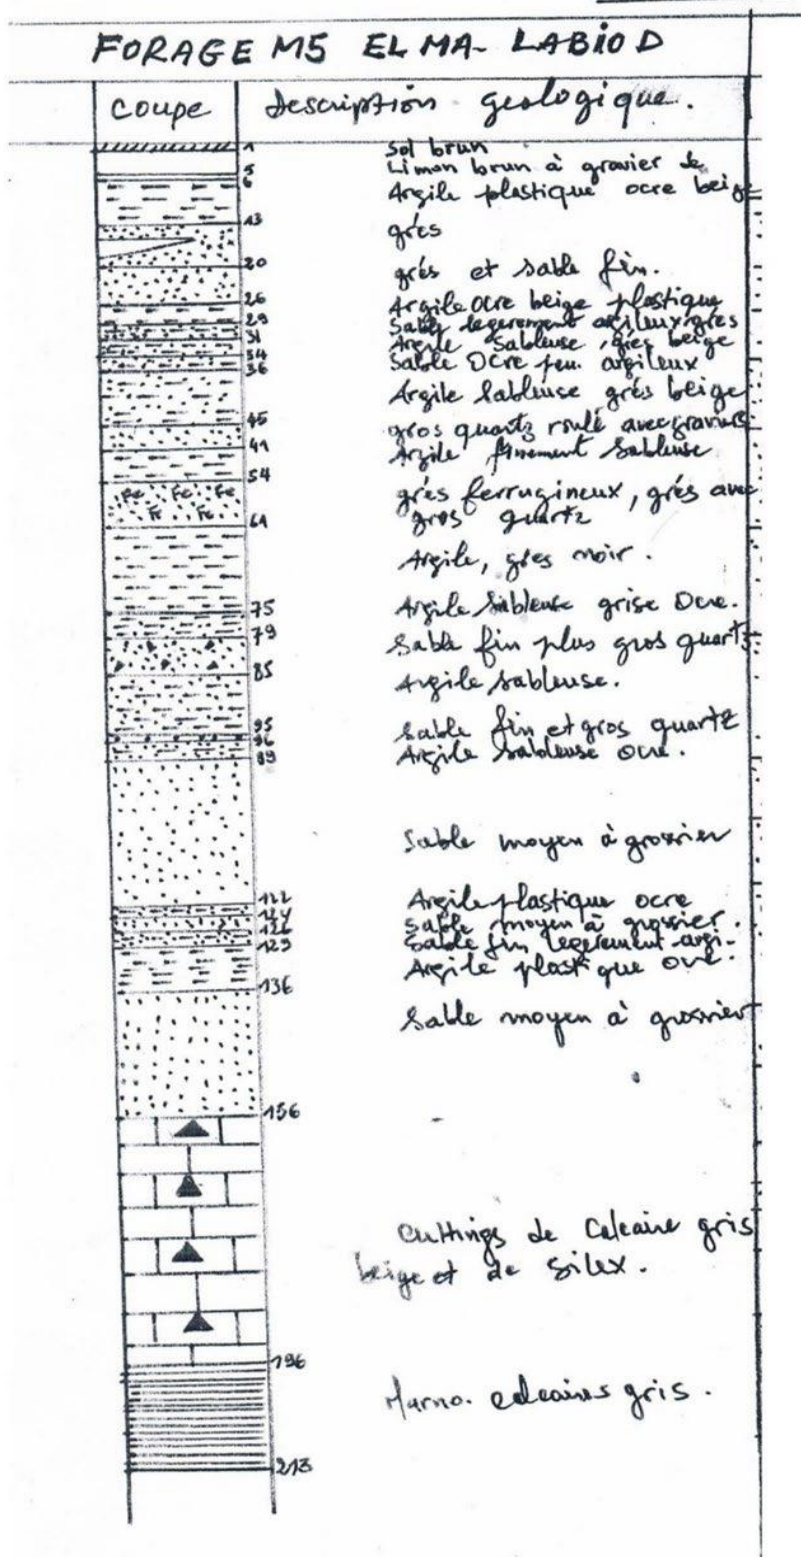 FORAGE M5 EL MA-LABIOD
coupe description geologique.
1 Sol brun
5 Limon brun à gravier de
6 Argile plastique ocre beige
13 grés
20 grés et sable fin.
26 Argile ocre beige plastique
29 Sable legerement argileux grés
31 Argile Sableuse, gres beige
34 Sable Ocre peu argileux
36
Argile Sableuse grés beige
45 gros quartz roulé avec graviers
49 Argile finement Sableuse
54
Fe Fe Fe grés ferrugineux, grés avec
Fe Fe gros quartz
61
Argile, gres noir.
75 Argile Sableuse grise Ocre.
79 Sable fin plus gros quartz
85 Argile sableuse.
95 Sable fin et gros quartz
96 Argile Sableuse ocre.
99
Sable moyen à grossier
122 Argile plastique ocre
124 Sable moyen à grossier.
126 Sable fin legerement argi-
129 Argile plastique ocre.
136
Sable moyen à grossier
156
Cuttings de Calcaire gris
beige et de Silex.
196
Marno. calcaires gris.
213